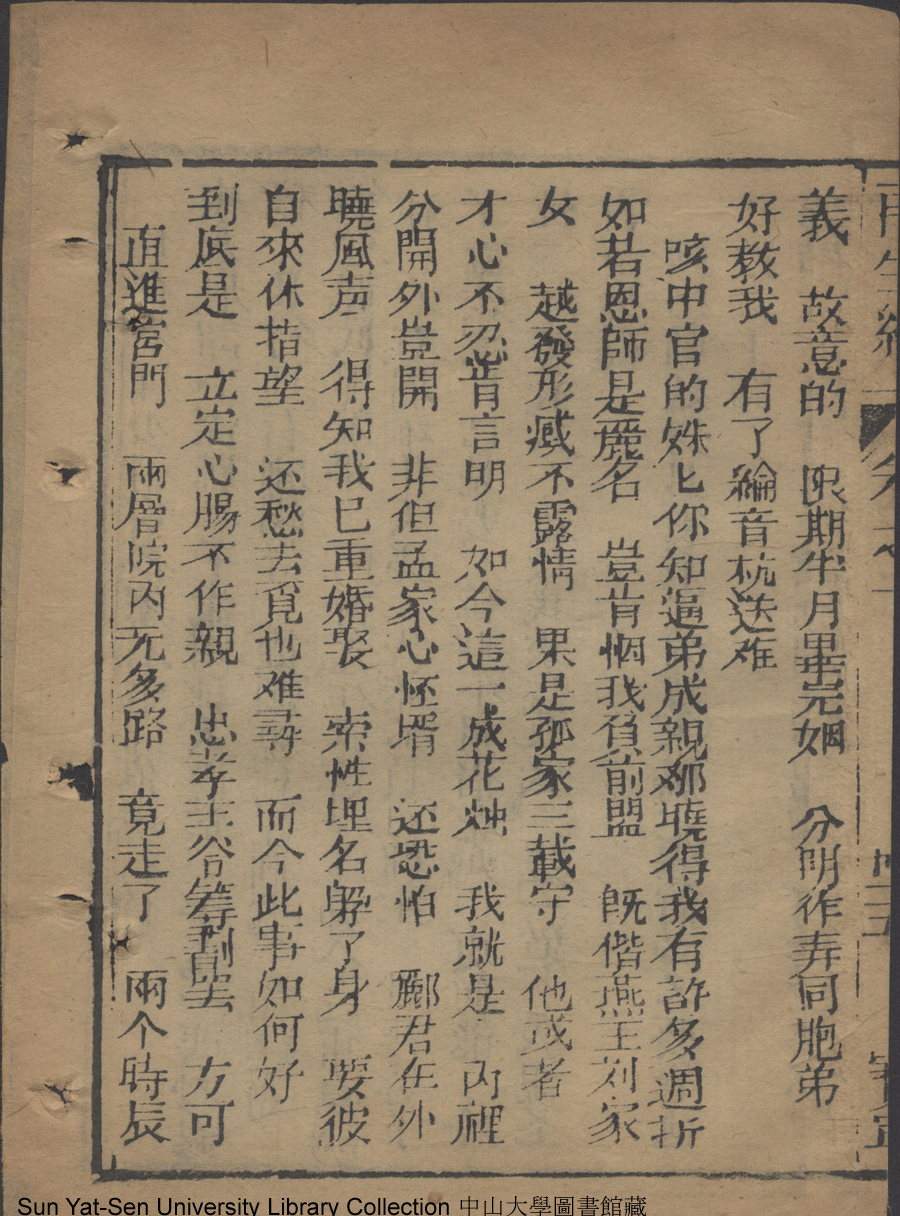 再生緣
義　故意的　限期半月畢完姻　分明作弄同胞弟
好教我　有了綸音杭送难
咳中宫的姊匕你知逼弟成親难曉得我有許多週折
如若恩師是麗名　豈肯悃我負前盟　既偕燕王刘家
女　越發形臧不露情　果是孤家三載守　他或者
才心不忍肯言明　如今這一成花烛　我就是　内裡
分開外豈開　非但孟家心怪壻　还恐怕　酈君在外
曉風声　得知我已重婚娶　索性埋名躱了身　娶彼
自來休指望　还愁去覓也难尋　而今此事如何好
到底是　立定心腸不作親　忠孝王谷筹劃罢　方可
直進宫門　兩層院内无多路　竟走了　兩个時辰
Sun Yat-Sen University Library Collection 中山大學圖書館藏